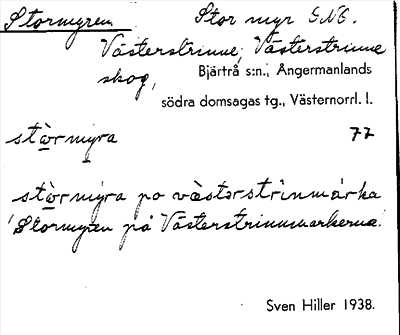 Stormyren Stor myr S.N.G.
Västerstrinne, Västerstrinne
skog, Bjärtrå s:n., Ångermanlands
södra domsagas tg., Västernorrl. l.
stòrmýra 77
stòrmýra po vàstərstrinmárka
'Stormyren på Västerstrinnmarkerna.'
Sven Hiller 1938.